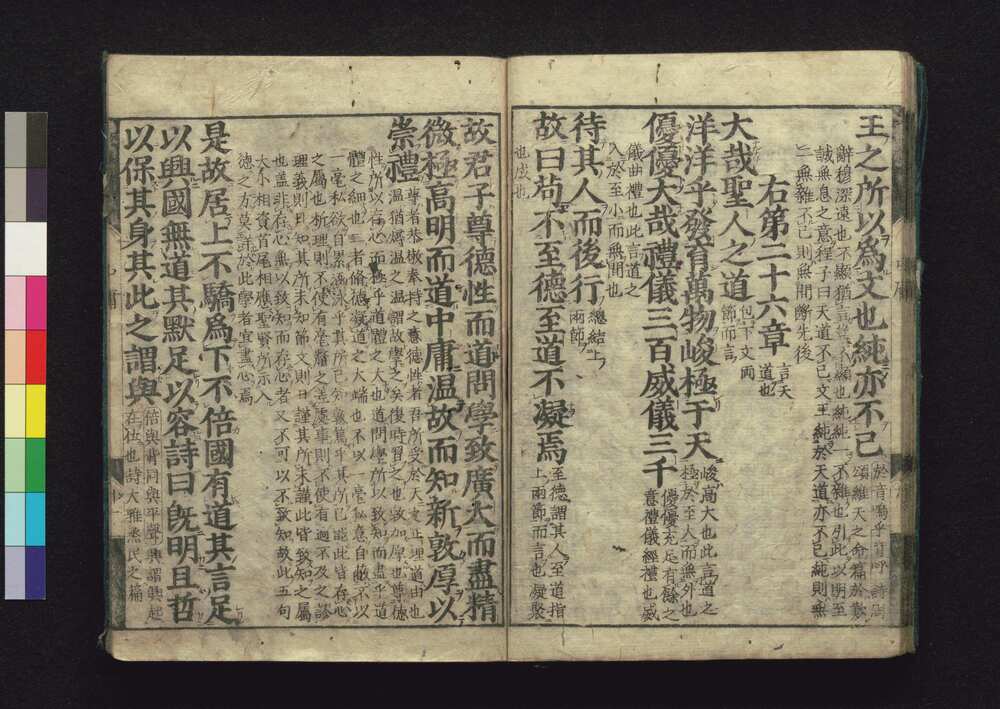 王之所以爲文也純亦不已
於音嗚乎音呼詩周
頌維天之命篇於歎
辭穆深遠也不顯猶言豈不顯也純純一不雜也引此以明至
誠無息之意程子曰天道不已文王純於天道亦不已純則無
二無雜不已則無間斷先後
右第二十六章
言天
道也
大哉聖人之道
包下文兩
節而言
洋洋乎發育萬物峻極于天
峻高大也此言道之
極於至大而無外也
優優大哉禮儀三百威儀三千
優優充足有餘之
意禮儀經禮也威
儀曲禮也此言道之
入於至小而無間也
待其人而後行
總結上
兩節
故曰苟不至德至道不凝焉
至德謂其人至道指
上兩節而言也凝聚
也成也
故君子尊德性而道問學致廣大而盡精
微極高明而道中庸温故而知新敦厚以
崇禮
尊者恭敬奉持之意德性者吾所受於天之正理道由也
温猶燖温之温謂故學之矣復時習之也敦加厚也尊德
性所以存心而極乎道體之大也道問學所以致知而盡乎道
體之細也二者脩德凝道之大端也不以一毫私意自蔽不以
一毫私欲自累涵泳乎其所已知敦篤乎其所已能此皆存心
之屬也析理則不使有毫釐之差處事則不使有過不及之謬
理義則日知其所未知節文則日謹其所未謹此皆致知之屬
也蓋非存心無以致知而存心者又不可以不致知故此五句
大小相資首尾相應聖賢所示入
德之方莫詳於此學者宜盡心焉
是故居上不驕爲下不倍國有道其言足
以興國無道其默足以容詩曰旣明且哲
以保其身其此之謂與
倍與背同與平聲興謂興起
在位也詩大雅烝民之篇